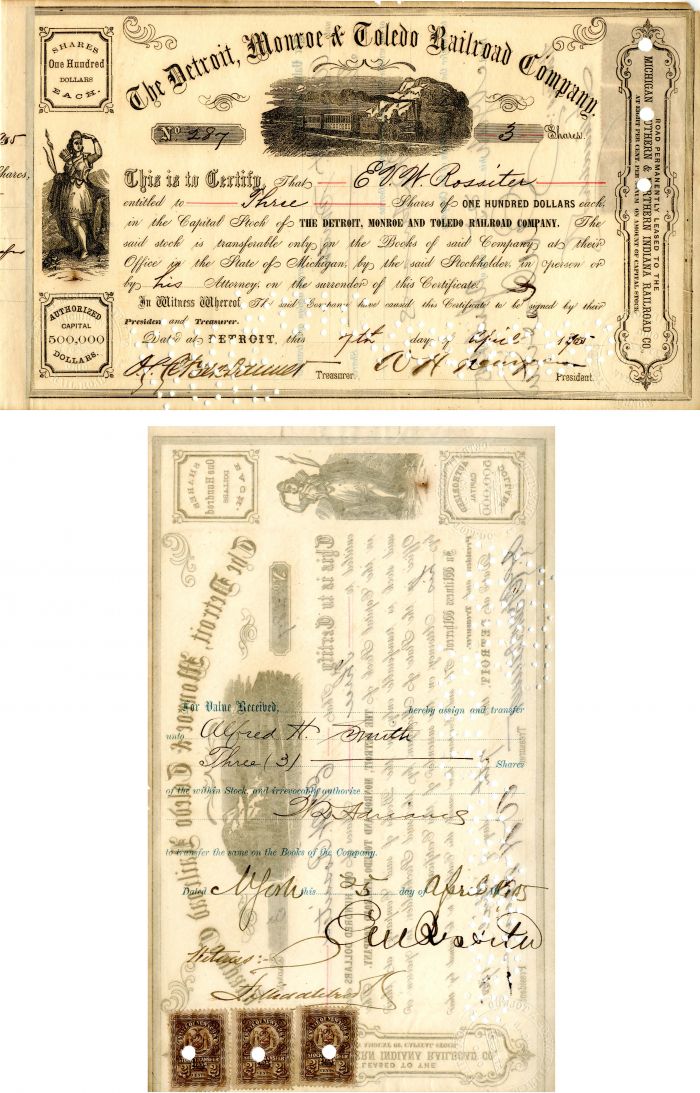 SHARES
One Hundred
DOLLARS
EACH.
The Detroit, Monroe & Toledo Railroad Company.
No 287
3 Shares.
This is to Certify, That E V. W. Rossiter
entitled to Three Shares of ONE HUNDRED DOLLARS each,
in the Capital Stock of THE DETROIT, MONROE AND TOLEDO RAILROAD COMPANY. The
said stock is transferable only on the Books of said Company at their
Office in the State of Michigan, by the said Stockholder, in person or
by his Attorney, on the surrender of this Certificate
In Witness Whereof The said Company have caused this Certificate to be signed by their
President and Treasurer.
Dated at DETROIT, this 7th day of April 1905
Treasurer.
President.
AUTHORIZED
CAPITAL
500,000
DOLLARS.
ROAD PERMANENTLY LEASED TO THE
MICHIGAN SOUTHERN & NORTHERN INDIANA RAILROAD CO.
AT EIGHT PER CENT. PER ANNUM ON AMOUNT OF CAPITAL STOCK.
Shares,
For Value Received, hereby assign and transfer
unto Alfred H. Smith
Three (3) Shares
of the within Stock, and irrevocably authorize
to transfer the same on the Books of the Company.
Dated N York this 25 day of April 1905
E V W Rossiter
Witness:-